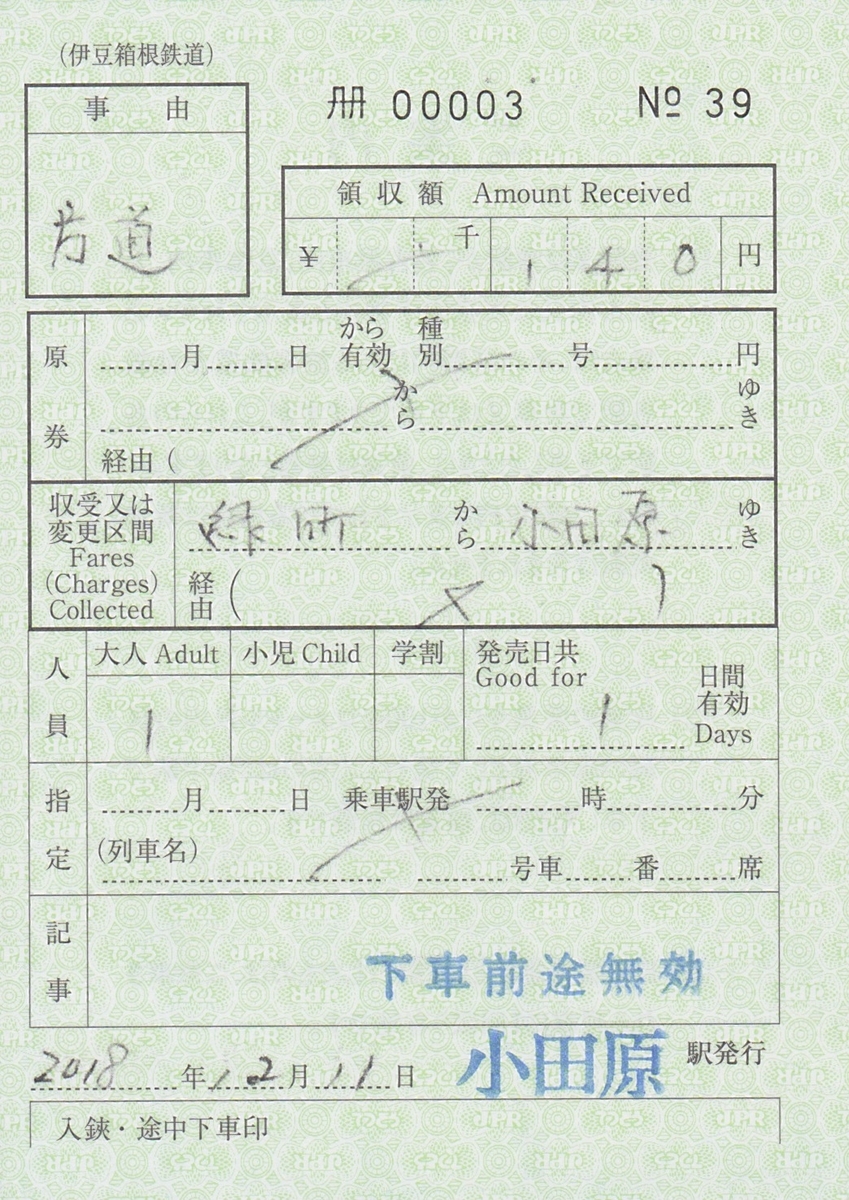 (伊豆箱根鉄道)
冊 00003 № 39
事由
片道
領収額 Amount Received
¥ 千 1 4 0 円
原券
月 日 から有効 種別 号 円
から ゆき
経由 (
収受又は変更区間 Fares (Charges) Collected
緑町 から 小田原 ゆき
経由 ( )
人員
大人 Adult 小児 Child 学割 発売日共 Good for 日間有効 Days
1 1
指定
月 日 乗車駅発 時 分
(列車名) 号車 番 席
記事
下車前途無効
2018 年 12 月 11 日 小田原 駅発行
入鋏・途中下車印